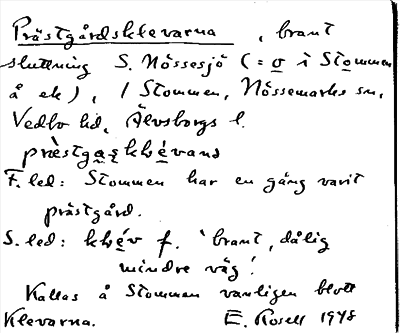 Prästgårdsklevarna, brant
sluttning S. Nössesjö (= σ i Stommen
å ek), / Stommen, Nössemarks sn,
Vedbo hd, Älvsborgs l.
præ̀stgaşkhévana
F. led: Stommen har en gång varit
prästgård.
S. led: khév f. 'brant, dålig
mindre väg'.
Kallas å Stommen vanligen blott
Klevarna. E. Rosell 1948